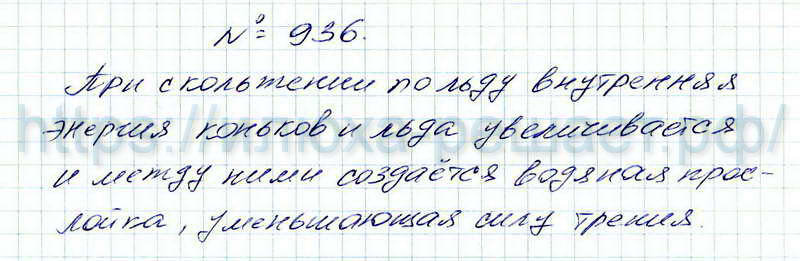 № 936.
При скольжении по льду внутренняя
энергия коньков и льда увеличивается
и между ними создаётся водяная прос-
лойка, уменьшающая силу трения.